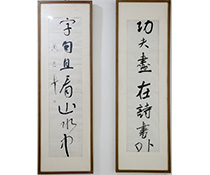 功夫盡在詩書外
字句且看山水中